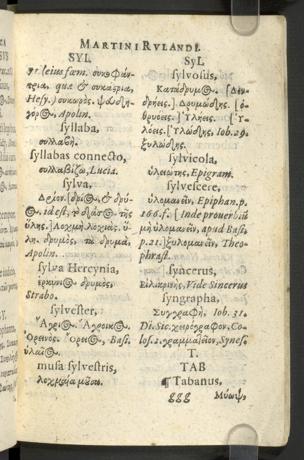 MARTINI RVLANDI
SYL
της (eius fœm. συκοφάν-
τρια. quæ & συκάστρια,
Hesy.) συκωρός. ψωδολή-
Apolin.
syllaba,
συλλαβή.
syllabas connecto,
συλλαβίζω, Lucia.
sylva,
id est, τῆς
ὕλης.] Λοχμὴ λοχμαῖς. ὕ-
λη. δρυμὸς, τὰ δρυμὰ,
Apolin.
sylva Hercynia,
δρυμὸς,
Strabo.
sylvester,
Ἄγριος. Ἀγροικος.
Ὀρεινός. Ὄρειος, Basi.
ὑλαῖος.
musa sylvestris,
λοχμαία μοῦσα.
SYL
sylvosus,
Κατάδρυμος. [Δεν-
δρήεις.] Δρυμώδης. [ὁ
δρυόεις.] Ὑλήεις. [Ὑ-
λόεις.] Ὑλώδης. Iob. 29.
ξυλώδης.
sylvicola,
ὑλειώτης, Epigram.
sylvescere,
ὑλομανεῖν, Epiphan. p.
166. f. [Inde proverbiũ
μὴ ὑλομανεῖν, apud Basi.
p. 21.] ξυλομανεῖν, Theo-
phrast.
syncerus,
Εἰλικρινὴς, Vide Sincerus
syngrapha,
Συγγραφή, Iob. 31.
Di. Sic. χειρόγραφον, Co-
los. 2. γραμματεῖον, Synes.
T.
TAB
¶ Tabanus,
ggg Μύωψ,